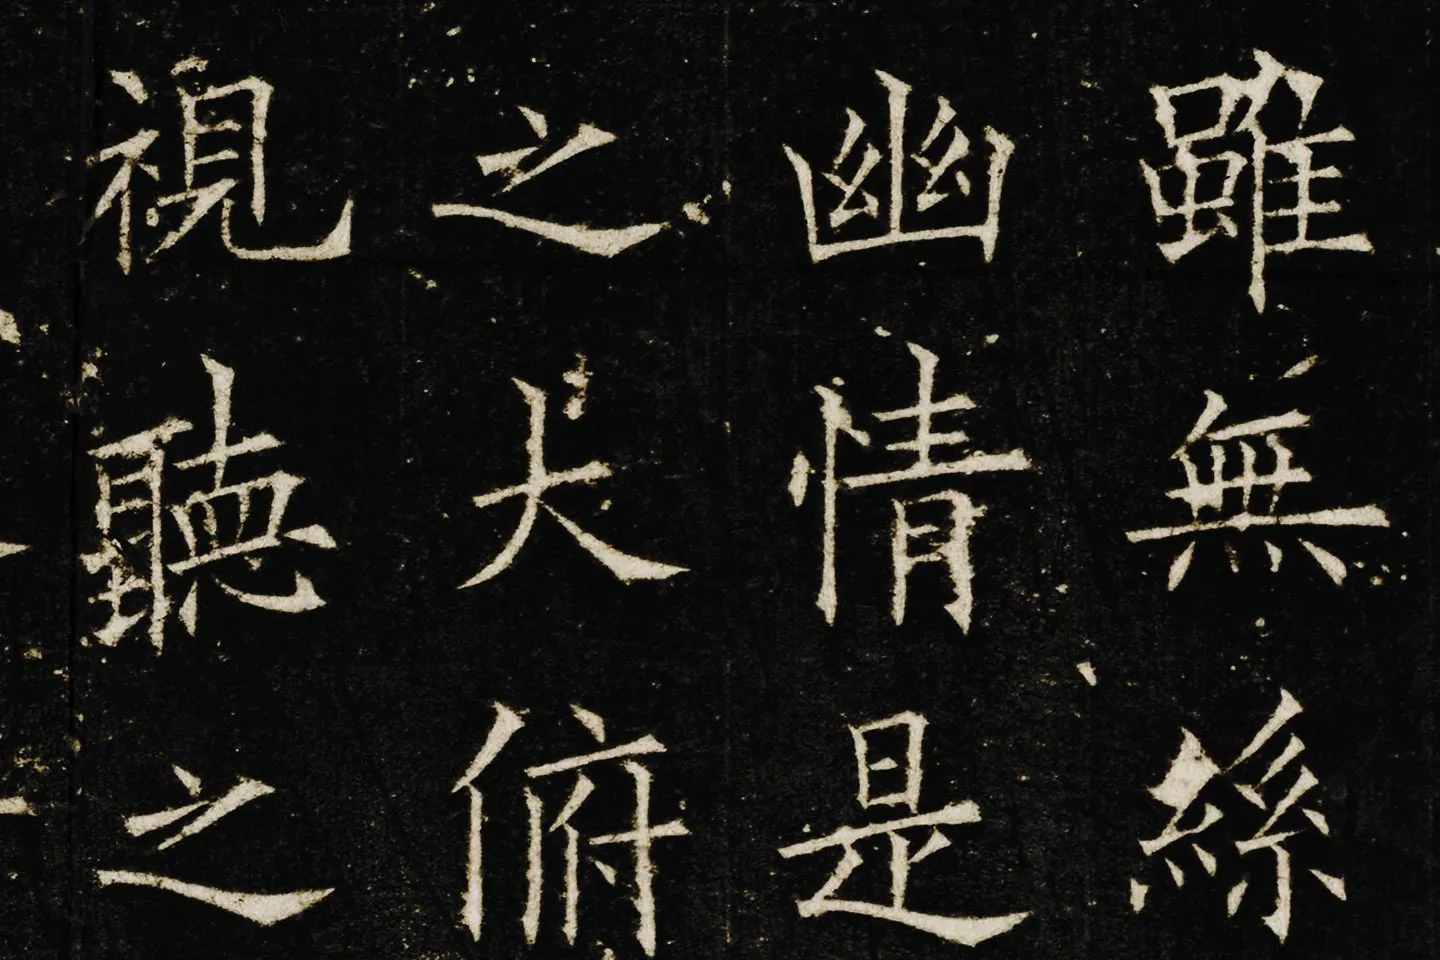 雖無絲
幽情是
之大俯
視聽之